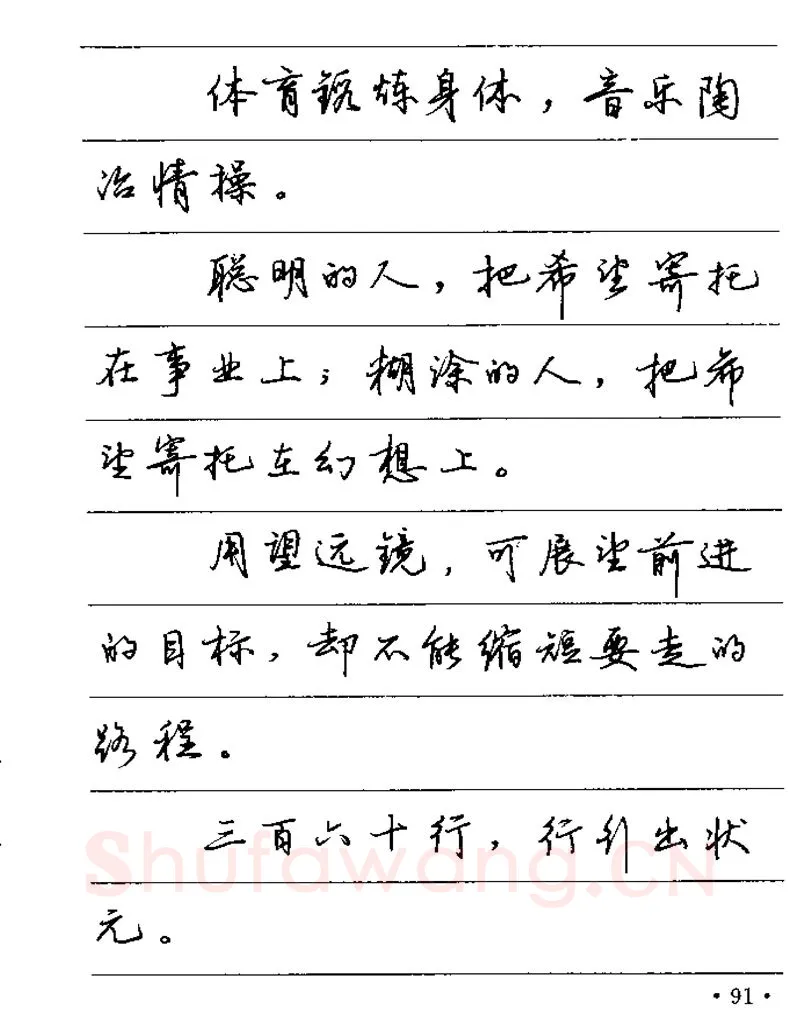 体育锻炼身体，音乐陶
冶情操。
聪明的人，把希望寄托
在事业上；糊涂的人，把希
望寄托在幻想上。
用望远镜，可展望前进
的目标，却不能缩短要走的
路程。
三百六十行，行行出状
元。
Shufawang.CN
·91·